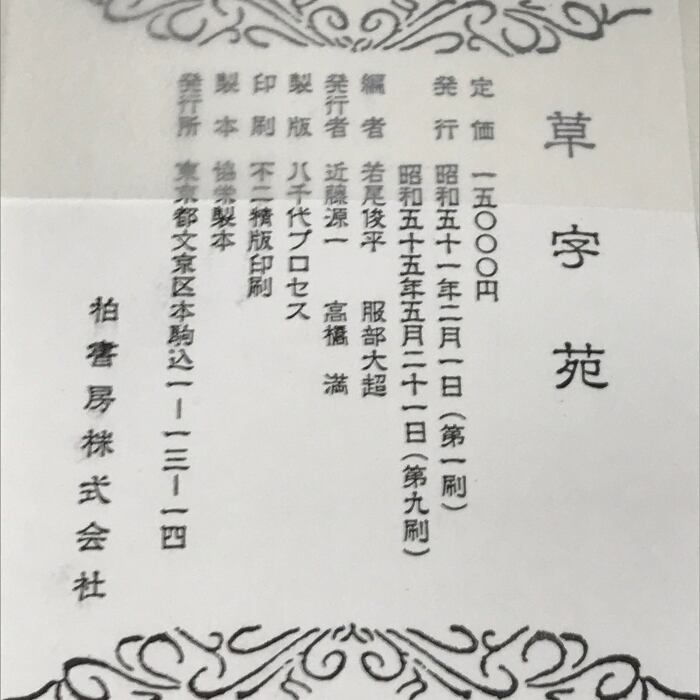 草字苑
定価 一五〇〇〇円
発行 昭和五十一年二月一日(第一刷)
昭和五十五年五月二十一日(第九刷)
編者 若尾俊平 服部大超
発行者 近藤源一 高橋満
製版 八千代プロセス
印刷 不二精版印刷
製本 協栄製本
発行所 東京都文京区本駒込一ー一三ー一四
柏書房株式会社